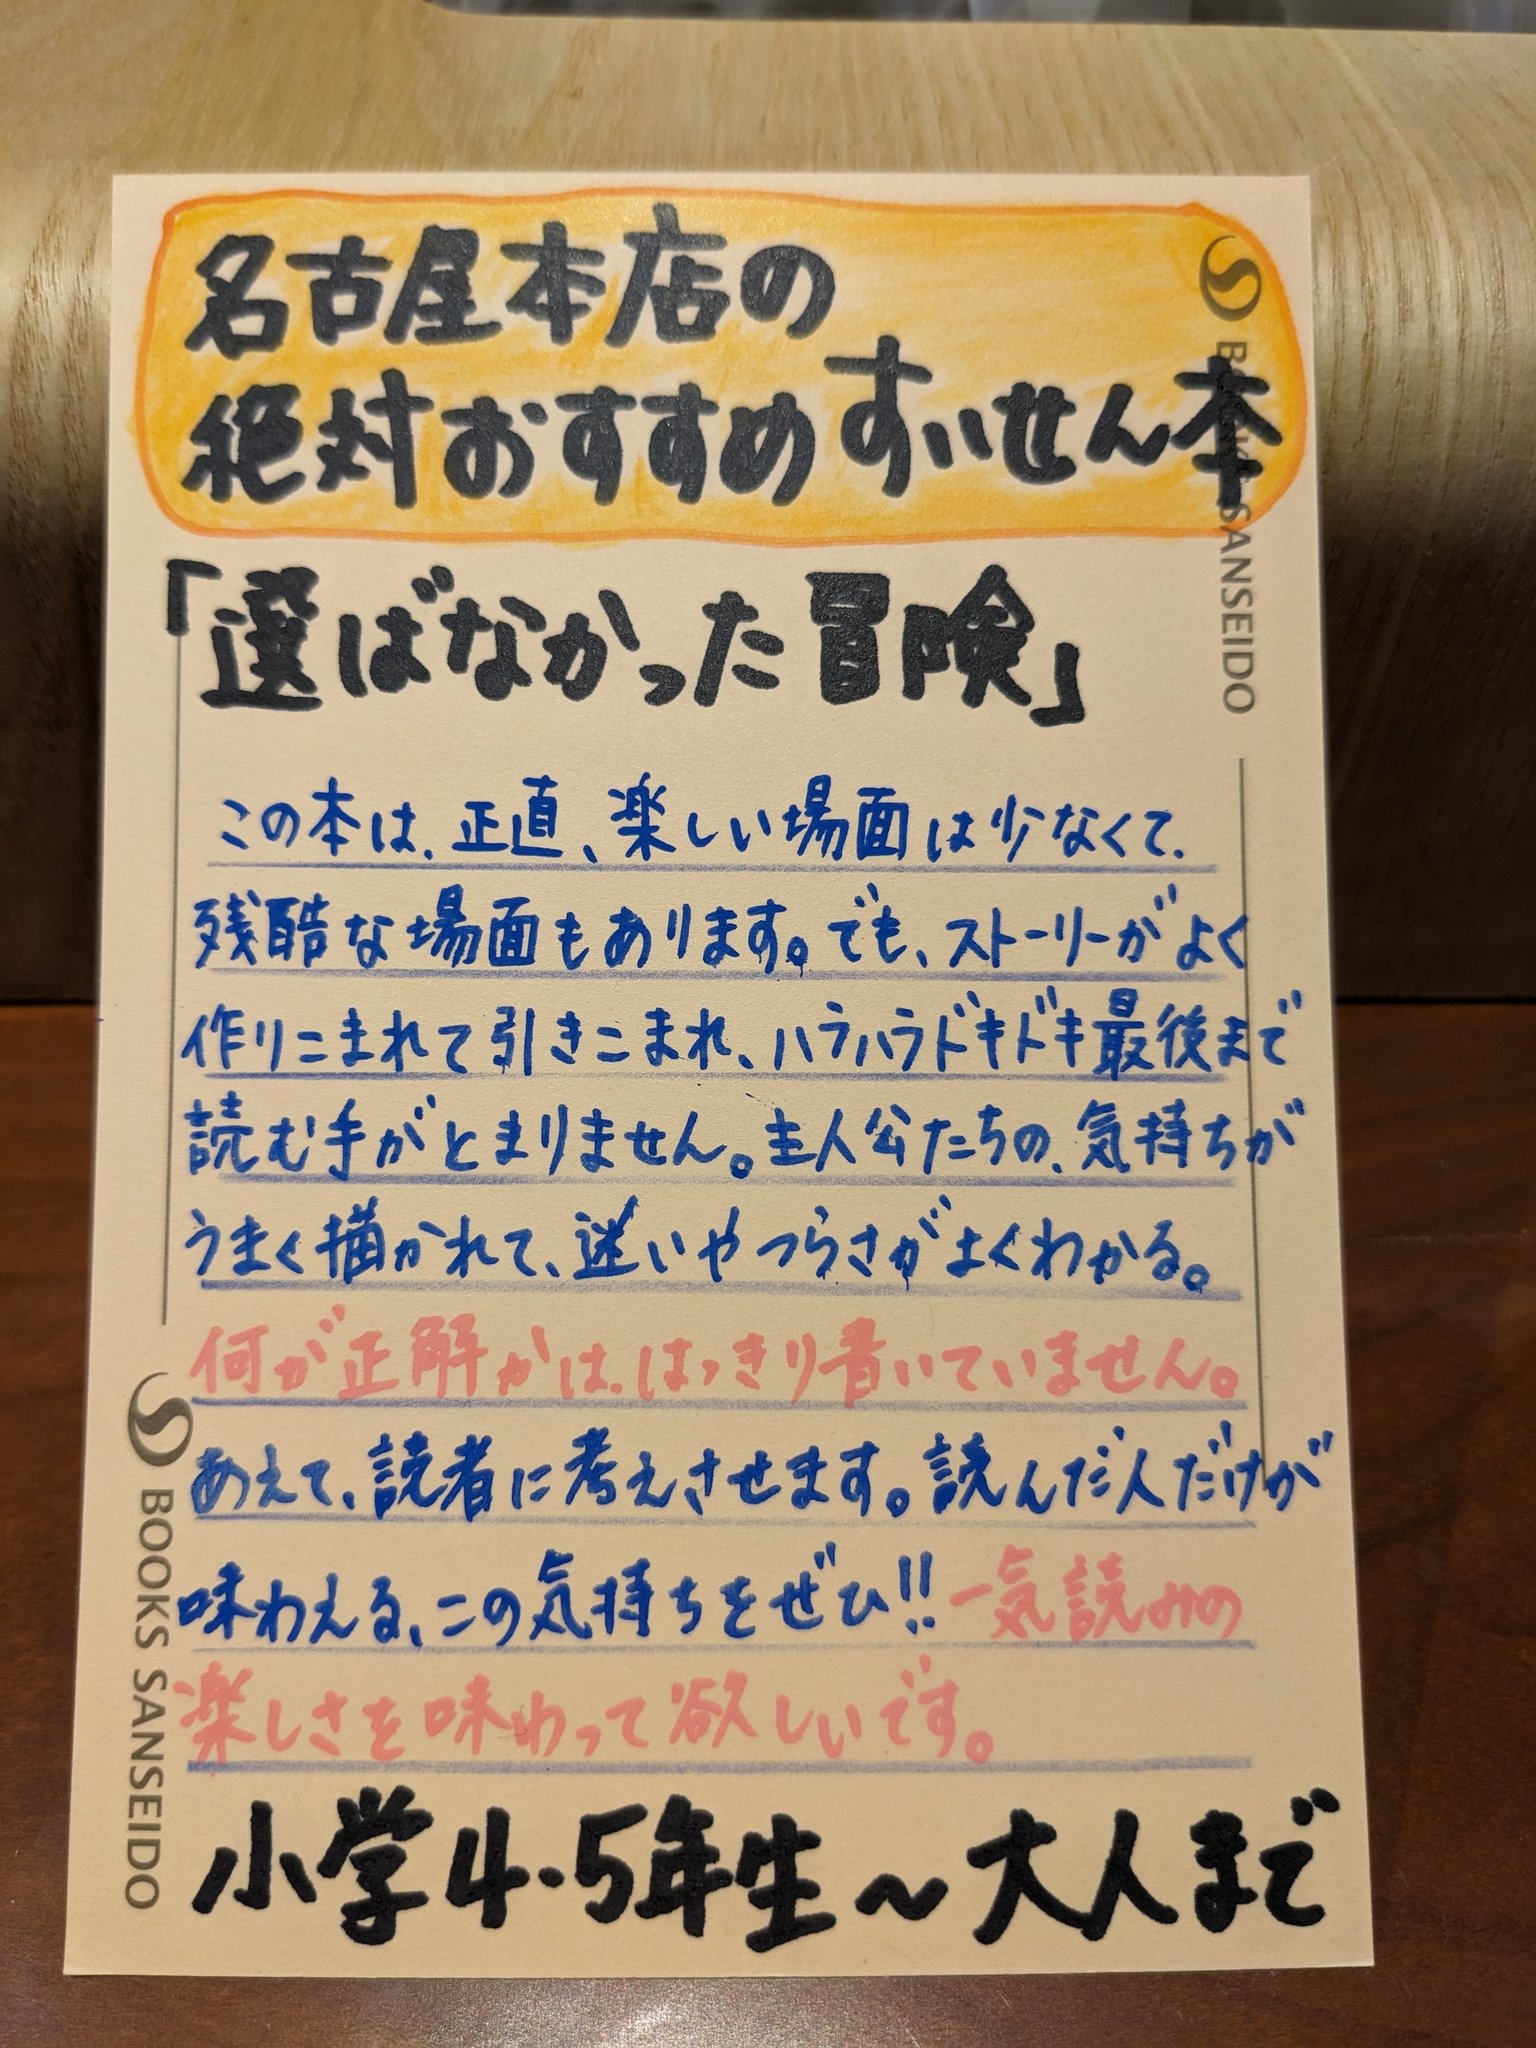 名古屋本店の
絶対おすすめすいせん本
「選ばなかった冒険」
この本は、正直、楽しい場面は少なくて、
残酷な場面もあります。でも、ストーリーがよく
作りこまれて引きこまれ、ハラハラドキドキ最後まで
読む手がとまりません。主人公たちの、気持ちが
うまく描かれて、迷いやつらさがよくわかる。
何が正解かは、はっきり書いていません。
あえて、読者に考えさせます。読んだ人だけが
味わえる、この気持ちをぜひ!!一気読みの
楽しさを味わって欲しいです。
小学4・5年生〜大人まで
BOOKS SANSEIDO
BOOKS SANSEIDO